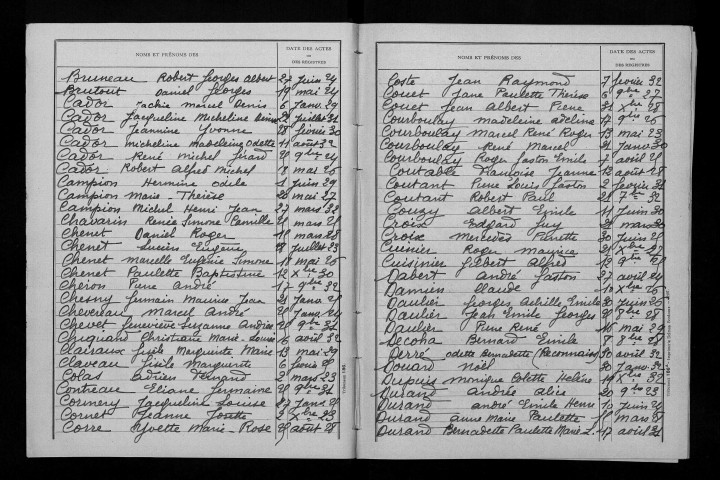 NOMS ET PRÉNOMS DES
DATE DES ACTES
OU
DES REGISTRES
Bruneau Robert Georges Albert 27 juin 24
Brutout Daniel Georges 19 mai 24
Cador Jackie Marcel Denis 6 janv. 29
Cador Jacqueline Micheline Denise 22 juillet 31
Cador Jeannine Yvonne 28 février 30
Cador Micheline Madeleine Odette 11 août 32
Cador René Michel Gérard 20 9bre 24
Cador Robert Alfred Michel 18 mai 26
Campion Hermine Odile 1 juin 29
Campion Marie-Thérèse 20 mai 27
Campion Michel Henri Jean 27 mars 32
Chavarin Renée Simone Camille 29 mars 25
Chenet Daniel Roger 18 mars 28
Chenet Lucien Eugène 28 juillet 23
Chenet Marcelle Eugénie Simone 18 mai 26
Chenet Paulette Baptistine 12 Xbre 30
Chéron Pierre André 17 9bre 32
Chesny Germain Maurice Jean 21 janv.
Chevereau Marcel André 20 janv. 24
Chevet Geneviève Suzanne Andrée 20 9bre 31
Chiquard Christiane Marie-Louise 6 avril 32
Clairaux Gisèle Marguerite Marie 13 mai 29
Claveau Gisèle Marguerite 6 février
Colas Adrien Fernand 2 mars 23
Contreau Eliane Germaine 29 9bre 31
Cormery Jacqueline Louise 27 janv.
Cornet Jeanne 3 Xbre 23
Corre Yvette Marie-Rose 29 août 28
NOMS ET PRÉNOMS DES
DATE DES ACTES
OU
DES REGISTRES
Coste Jean Raymond 7 février 32
Couet Jane Paulette Thérèse 6 9bre 27
Couet Jean Albert Pierre 31 Xbre 28
Courboulay Madeleine Adelina 17 9bre 26
Courboulay Marcel René Roger 13 mai 23
Courboulay René Marcel 21 janv. 30
Courboulay Roger Gaston Emile 7 avril 25
Coutable Françoise Jeanne 12 août 28
Coutant Pierre Louis Gaston 2 février 31
Coutant Robert Paul 21 7bre 32
Couzy Albert Emile 11 juin 30
Croix Edgard Guy 31 mars 30
Croix Mercédès Pierrette 30 juin 28
Cuenier Roger Maurice 21 Xbre 27
Cuisinier Gilbert Alfred 19 9bre
Dabert André Gaston 27 avril 24
Damien Claude 10 Xbre 26
Daulier Georges Achille Emile 20 juin 26
Daulier Jean Emile Georges 20 8bre 28
Daulier Pierre René 16 mai 29
Decoha Bernard Emile 8 8bre
Derré Odette Bernadette (Reconnaiss) 30 avril 32
Douard Noël 20 janv. 32
Dupuis Monique Colette Hélène 19 Xbre 32
Durand André Alice 20 9bre 23
Durand André Emile Henri 10 juin
Durand Anne Marie Paulette 18 mars 28
Durand Bernadette Paulette Marie L. 17 avril 31